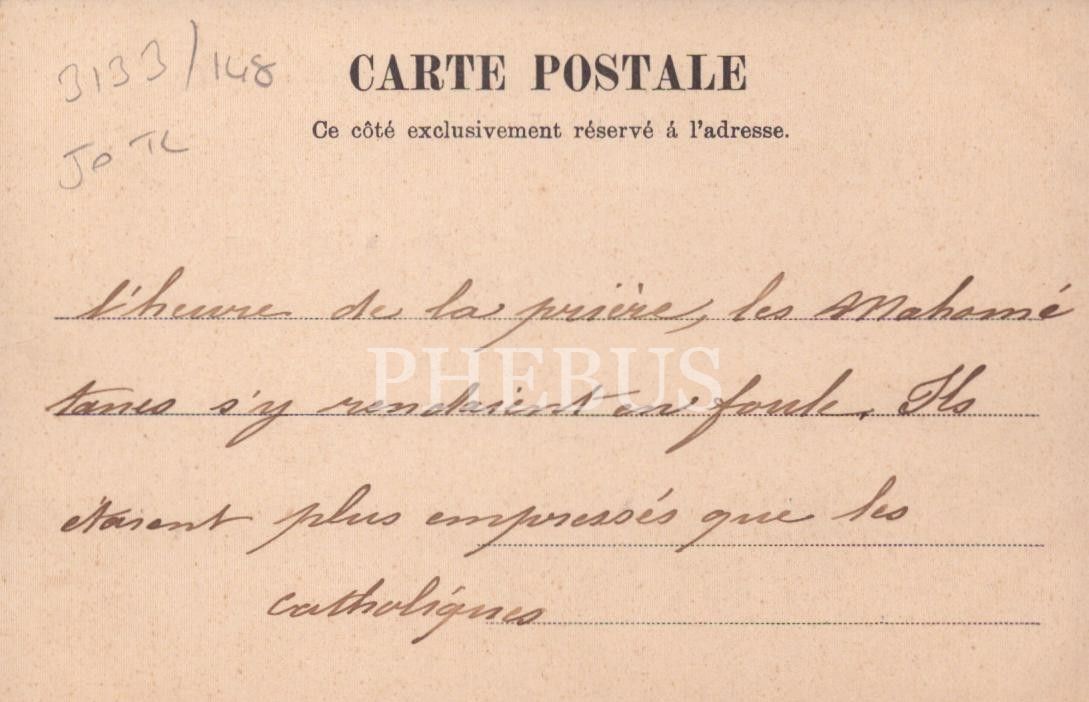 3133/148
CARTE POSTALE
Ce côté exclusivement réservé á l'adresse.
50 TL
l'heure de la prière, les Mahomé
PHEBUS
tanes s'y rendaient en foule. Ils
étaient plus empressés que les
catholiques